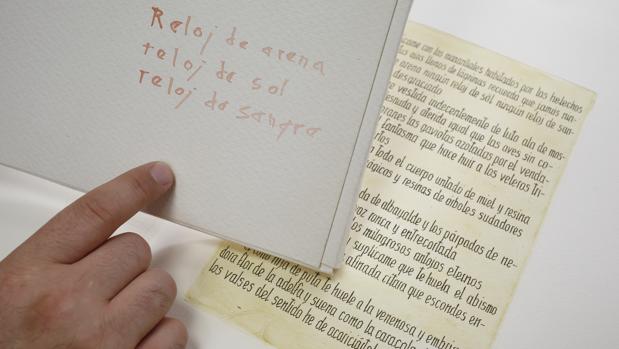 Reloj de arena
reloj de sol
reloj de sangre
con los manantiales habitados por los helechos
los ojos llenos de lágrimas recuerda que jamás nun-
arena ningún reloj de sol ningún reloj de san-
desgraciado
vestida indecentemente de luto ala de mos-
desnuda y aterida igual que las aves sin co-
las gaviotas azotadas por el venda-
fantasma que hace huir a las veleras tri-
todo el cuerpo untado de miel y resina
y resinas de árboles sudadores
de albayalde y los párpados de ne-
voz ronca y entrecortada
los milagrosos antojos eternos
y suplícame que te huela el abismo
afinada cítara que escondes en-
de puta le huele a la venenosa y
flor de la adelfa y suena como la caracola
los valses del sentido he de